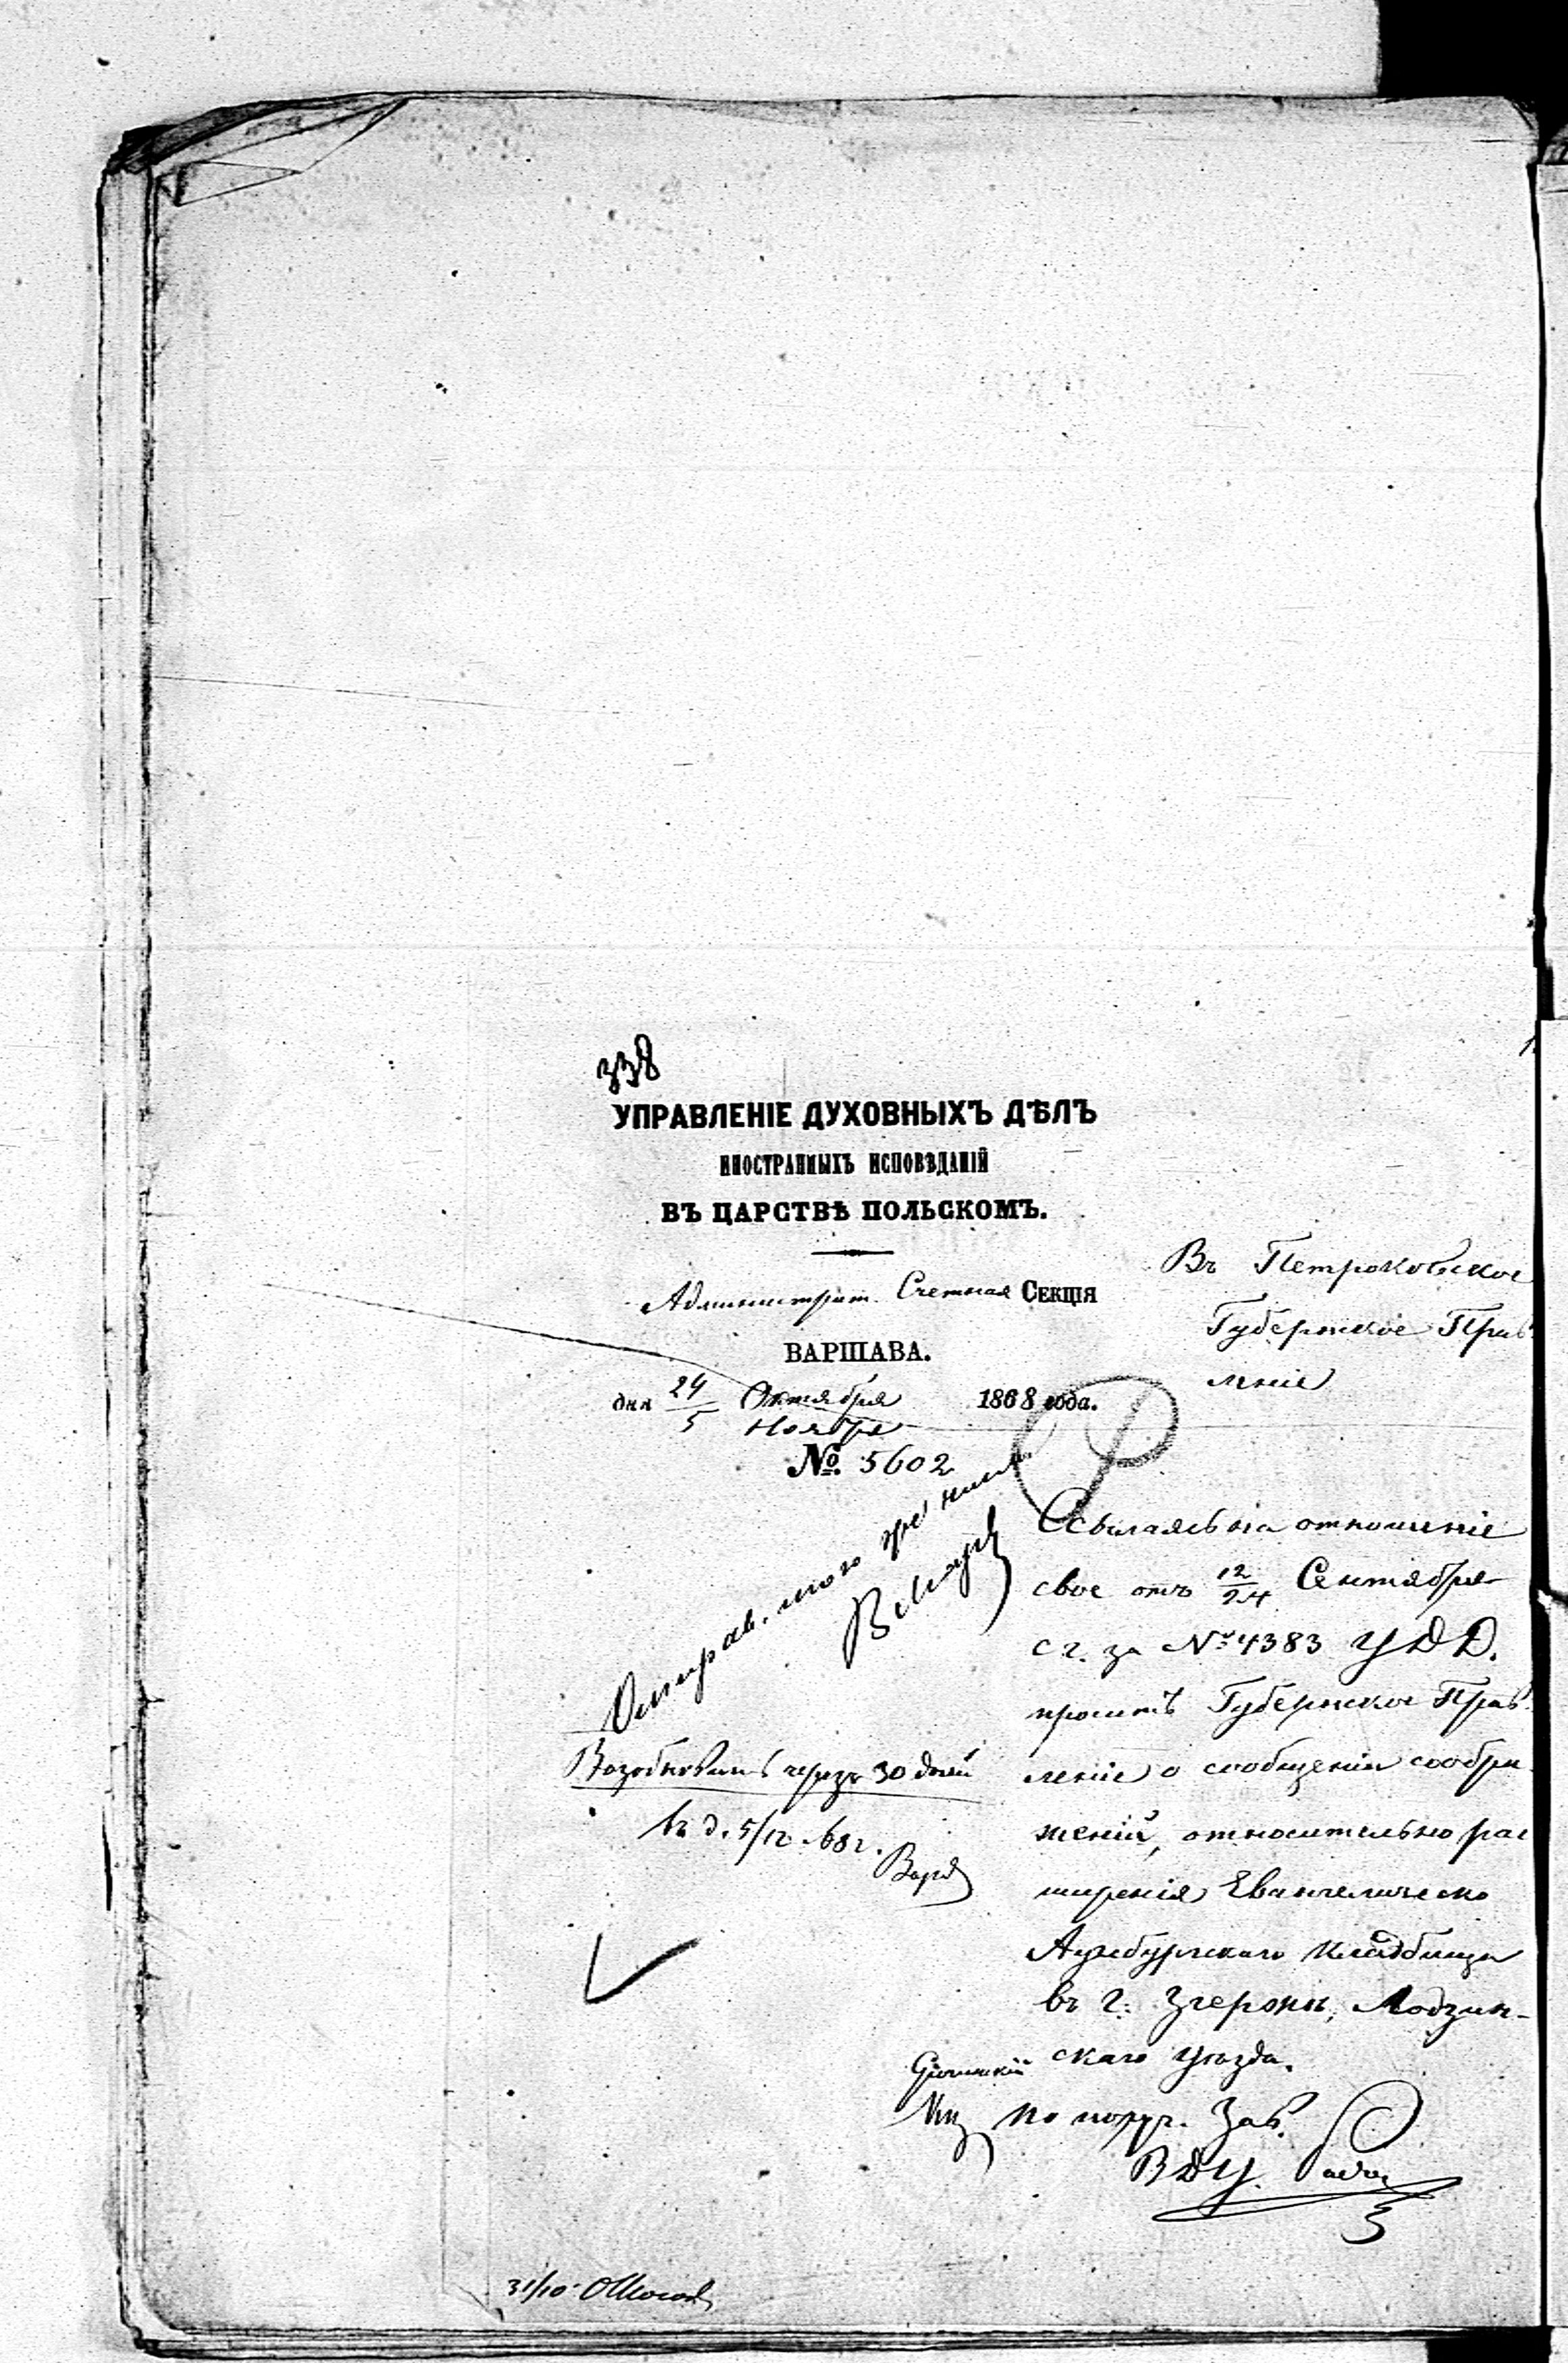 338
УПРАВЛЕНІЕ ДУХОВНЫХЪ ДѢЛЪ
ИНОСТРАННЫХЪ ИСПОВѢДАНІЙ
ВЪ ЦАРСТВѢ ПОЛЬСКОМЪ.
Административ. Счетная СЕКЦІЯ
ВАРШАВА.
дня 24/5 Октября/Ноября 1868 года.
№. 5602
Въ Петроковское
Губернское Прав
леніе
Ссылаясь на отношеніе
свое отъ 12/24 Сентября
с г. за № 4383 УДД.
проситъ Губернское Прав
леніе о сообщеніи сообра
женій, относительно рас
ширенія Евангелическо
Аугсбургскаго кладбища
въ г. Згержѣ, Лодзин-
скаго уѣзда.
по поруч. Зав.
ВДУ.
Возобновить черезъ 30 дней
въ д. 5/12 68 г.
31/10